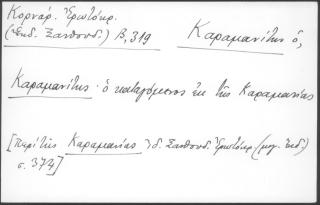 Κορνάρ. Ἐρωτόκρ.
(Ἐκδ. Ξανθουδ.) Β, 319
Καραμανίτης ὁ,
Καραμανίτης · ὁ καταγόμενος ἐκ τῆς Καραμανίας
[περὶ τῆς Καραμανίας ἰδ. Ξανθουδ. Ἐρωτόκρ. (μεγ. ἐκδ.)
σ. 374]